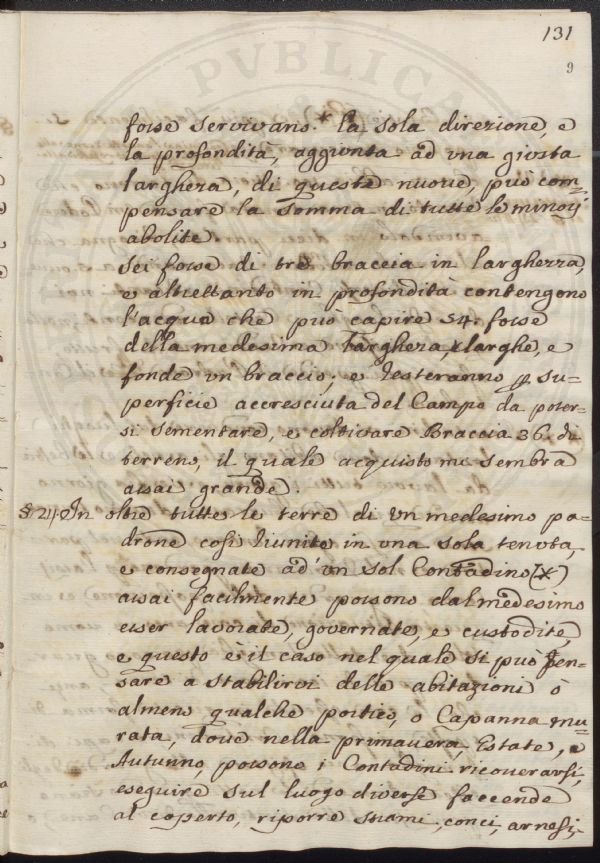 131
9
fosse servivano.* la sola direzione, e
la profondità, aggiunta ad una giusta
larghezza, di queste nuove, può com-
pensare la somma di tutte le minori
abolite.
Sei fosse di tre braccia in larghezza,
e altrettanto in profondità contengono
l'acqua che può capire 54. fosse
della medesima larghe, e
fonde un braccio; e resteranno p su-
perficie accresciuta del Campo da poter-
si sementare, e coltivare Braccia 36. di
terreno, il quale acquisto me sembra
assai grande.
§ 24. In oltre tutte le terre di un medesimo pa-
drone così riunite in una sola tenuta,
e consegnate ad un sol Contadino (X)
assai facilmente possono dal medesimo
esser lavorate, governate, e custodite,
e questo è il caso nel quale si può pen-
sare a stabilirvi delle abitazioni ò
almeno qualche portico, o Capanna mu-
rata, dove nella primavera, Estate, e
Autunno, possono i Contadini ricoverarsi,
eseguire sul luogo diverse faccende
al coperto, riporre strami, conci, arnesi,
PVBLICA